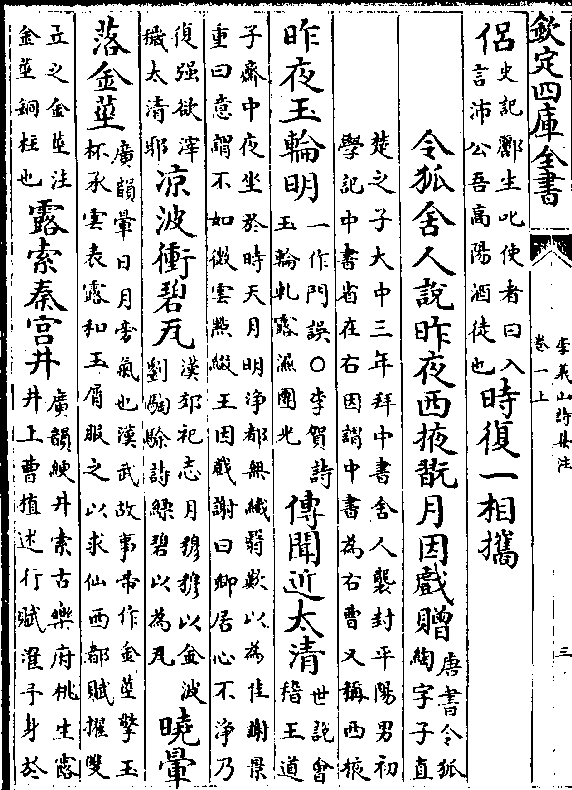 欽定四庫全書
李義山詩集注
卷一上
三
侶
史記酈生叱使者曰入
言沛公吾高陽酒徒也
時復一相攜
令狐舍人說昨夜西掖翫月因戲贈
唐書令狐
綯字子直
楚之子大中三年拜中書舍人襲封平陽男初
學記中書省在右因謂中書為右曹又稱西掖
昨夜玉輪明
一作門誤○李賀詩
玉輪軋露濕團光
傳聞近太清
世說會
稽王道
子齋中夜坐於時天月明淨都無纖翳歎以為佳謝景
重曰意謂不如微雲㸃綴王因戲謝曰卿居心不淨乃
復强欲滓
穢太清耶
凉波衝碧瓦
漢郊祀志月穆穆以金波
劉騊駼詩縹碧以為瓦
曉暈
落金莖
廣韻暈日月旁氣也漢武故事帝作金莖擎玉
杯承雲表露和玉屑服之以求仙西都賦擢雙
立之金莖注
金莖銅柱也
露索秦宫井
廣韻綆井索古樂府桃生露
井上曹植述行賦濯予身於